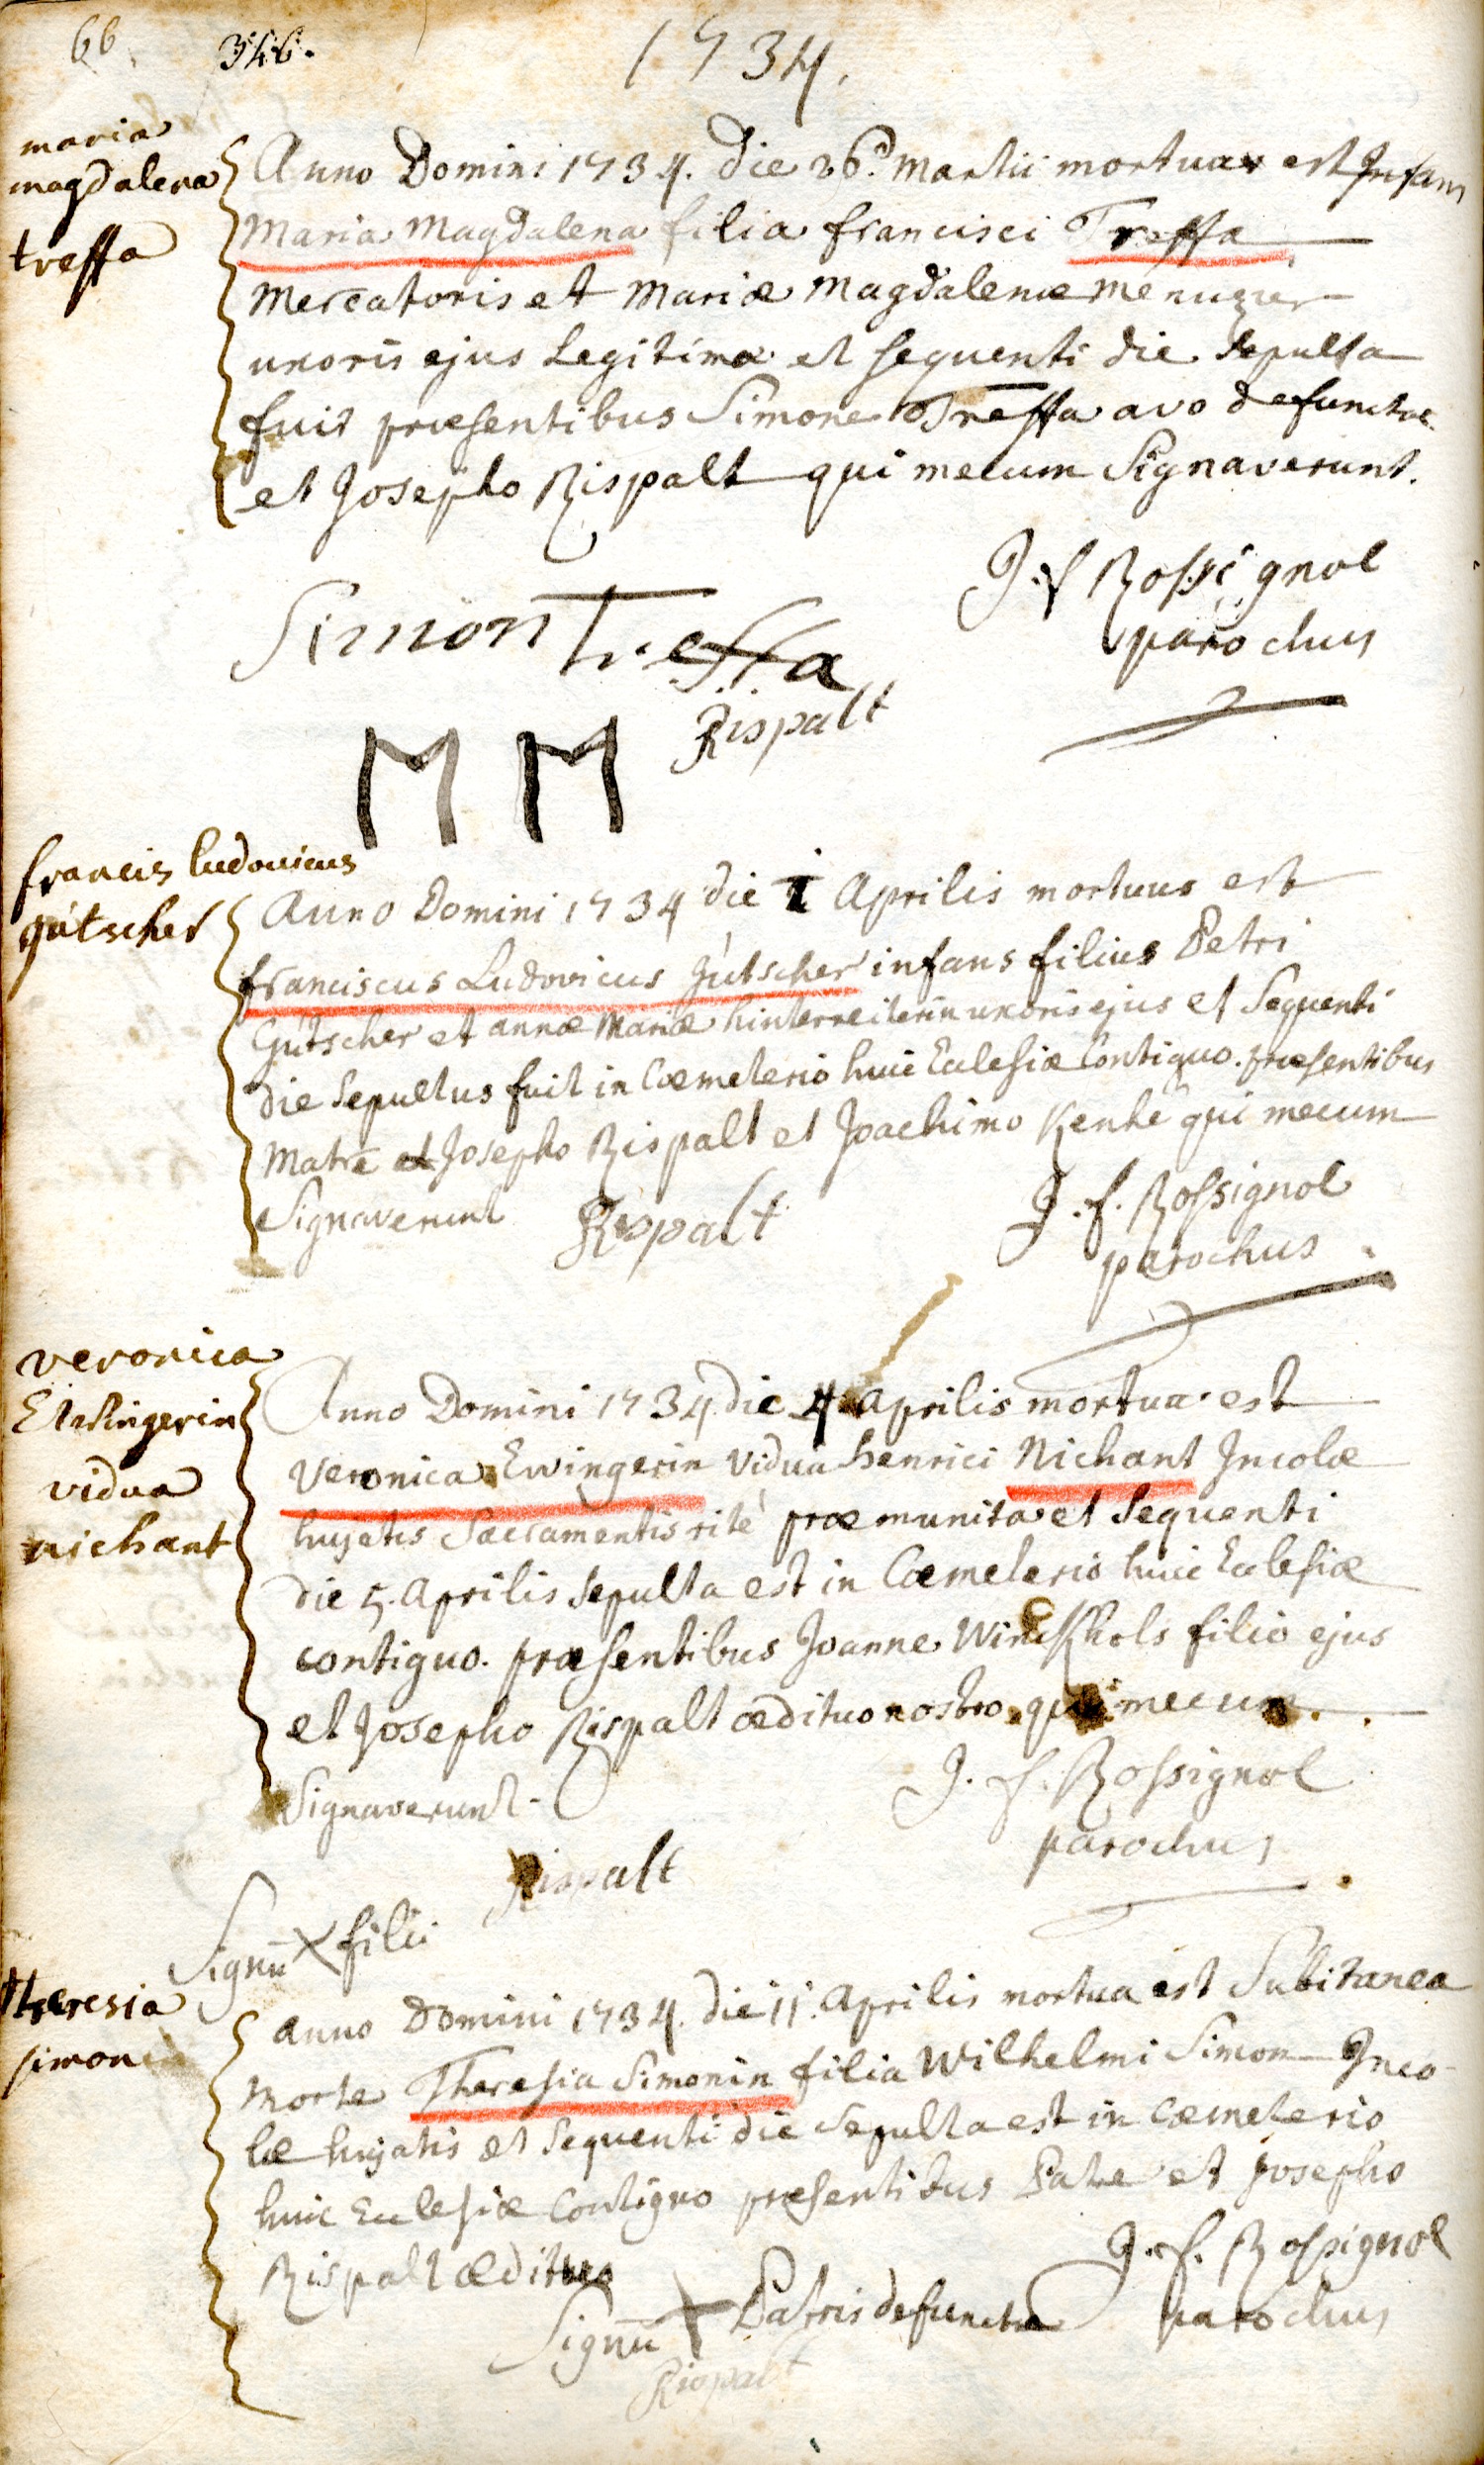 66
346.
1734.
maria
magdalena
treffa
Anno Domini 1734. die 26.a Martii mortua est Infans
Maria Magdalena filia francisci Treffa
Mercatoris et Mariæ Magdalenæ Menuzier
uxoris ejus Legitimæ et sequenti die Sepulta
fuit præsentibus Simone Treffa avo defunctæ
et Josepho Rispalt qui mecum Signaverunt.
J. f Rossignol
parochus
Simon Treffa
Rispalt
M M
francis ludovicus
gútscher
Anno Domini 1734 die 1 Aprilis mortuus est
franciscus Ludovicus Gútscher infans filius Petri
Gútscher et annæ Mariæ hinterreiterin uxoris ejus et Sequenti
die Sepultus fuit in Cœmeterio huic Ecclesiæ Contiguo. præsentibus
Matre et Josepho Rispalt et Joachimo Kenhe qui mecum
Signaverunt
Rispalt
J. f. Rossignol
parochus
veronica
vidua
nichant
Anno Domini 1734 die 4 aprilis mortua est
Veronica Ewingerin vidua henrici Nichant Incolæ
hujatis Sacramentis rité præmunita et Sequenti
die 5. Aprilis Sepulta est in Cœmeterio huic Ecclesiæ
contiguo. præsentibus Joanne filio ejus
et Josepho Rispalt ædituo nostro qui mecum
Signaverunt.
J. f. Rossignol
parochus
Rispalt
Signū X filii
theresia
simon
anno Domini 1734. die 11. Aprilis mortua est Subitanea
Morte Theresia Simonin filia Wilhelmi Simon Inco
læ hujatis et Sequenti die Sepulta est in Cœmeterio
huic Ecclesiæ Contiguo præsentibus Patre et Josepho
Rispalt ædituo
J. f. Rossignol
parochus
Signū X Patris defunctæ
Rispalt